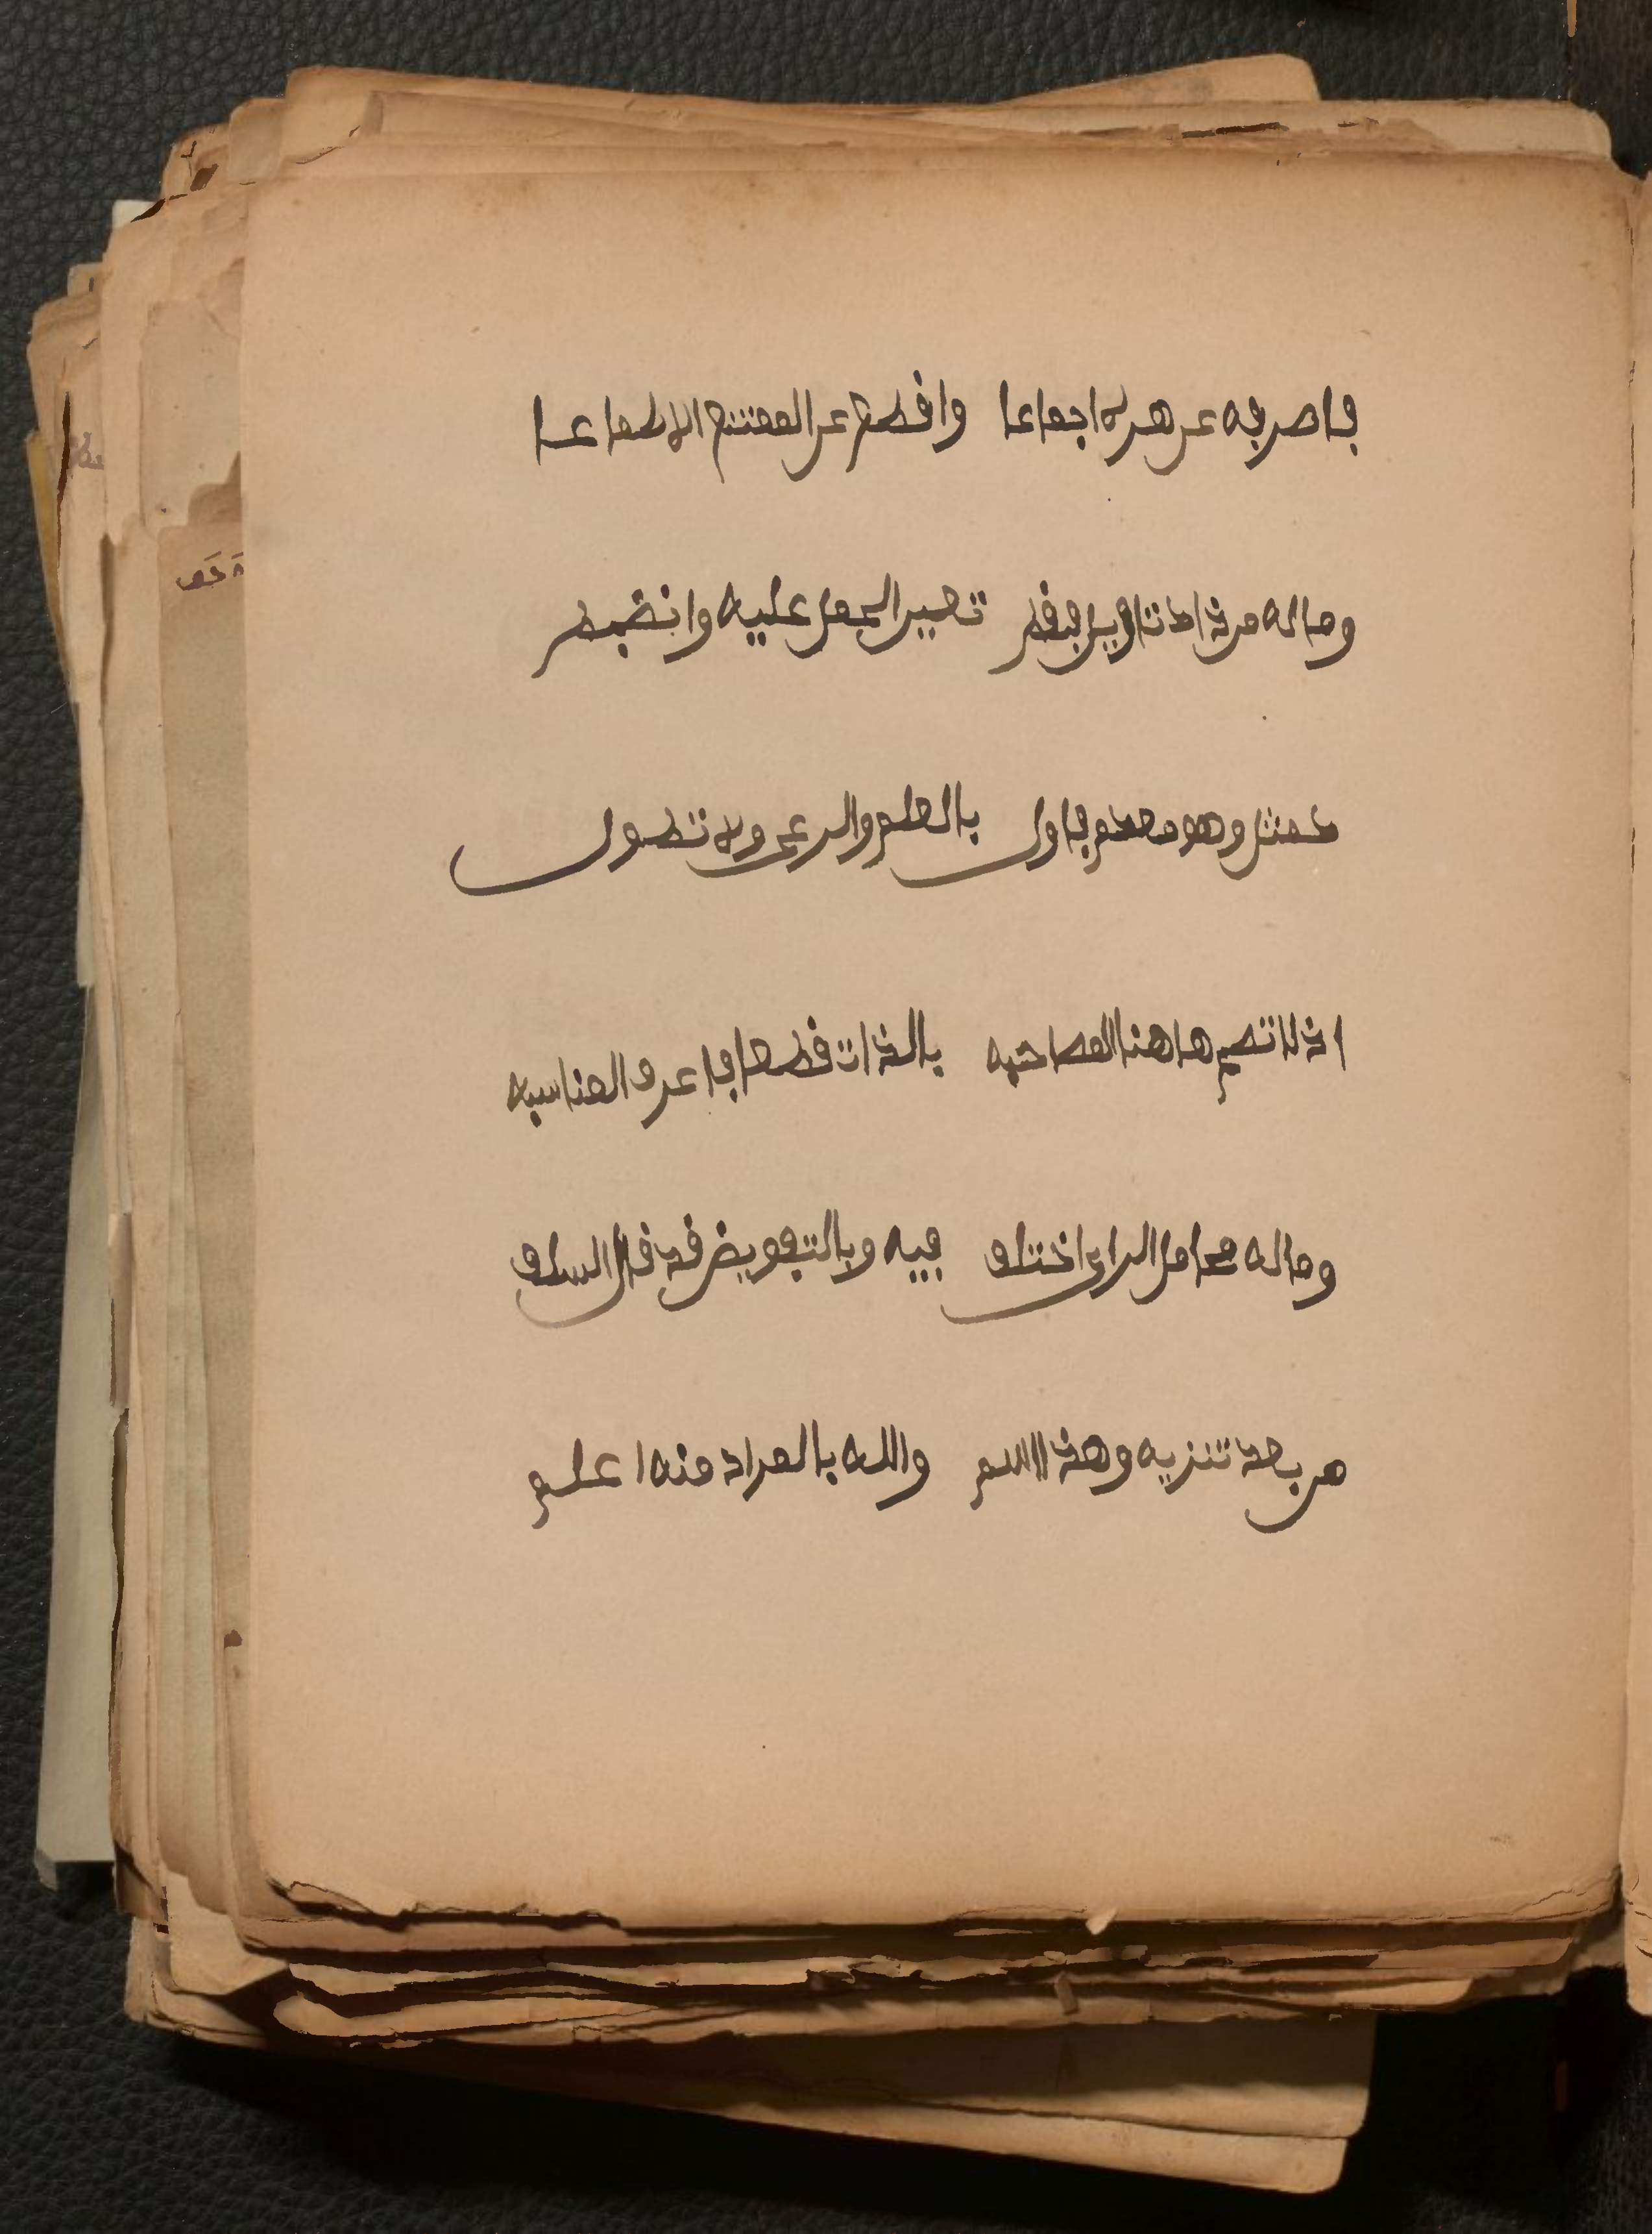 فاصرفه عن ظاهره اجماعا واقطع عن الممتنع الاطماعا
وما له من ذاك تاويل فقط تعين الحمل عليه وانضبط
كمثل وهو معكم فاول بالعلم والرعي ولا تطول
اذ لا تصح هاهنا المصاحبه بالذات قطعا فاعرف المناسبه
وما له محامل الراي اختلف فيه وبالتفويض قد قال السلف
من بعد تنزيه وهذا اسلم والله بالمراد منه اعلم